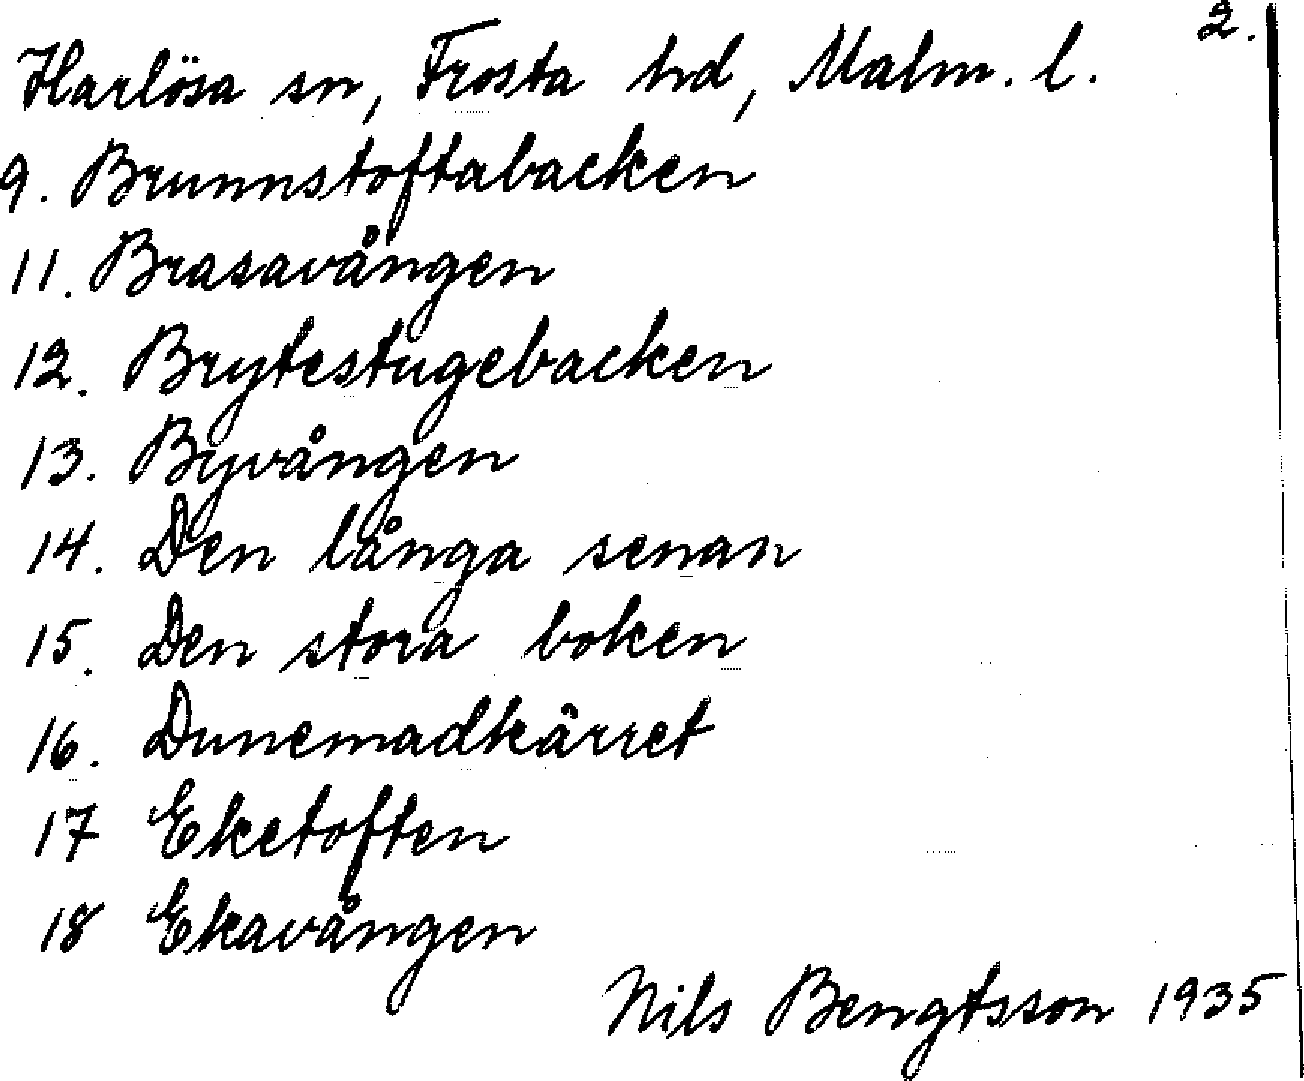 2.
Harlösa sn, Frosta hd, Malm. l.
9. Brunnstoftabacken
11. Brasavången
12. Brytestugebacken
13. Byvången
14. Den långa senan
15. Den stora boken
16. Dunemadkärret
17 Eketoften
18 Ekavången
Nils Bengtsson 1935